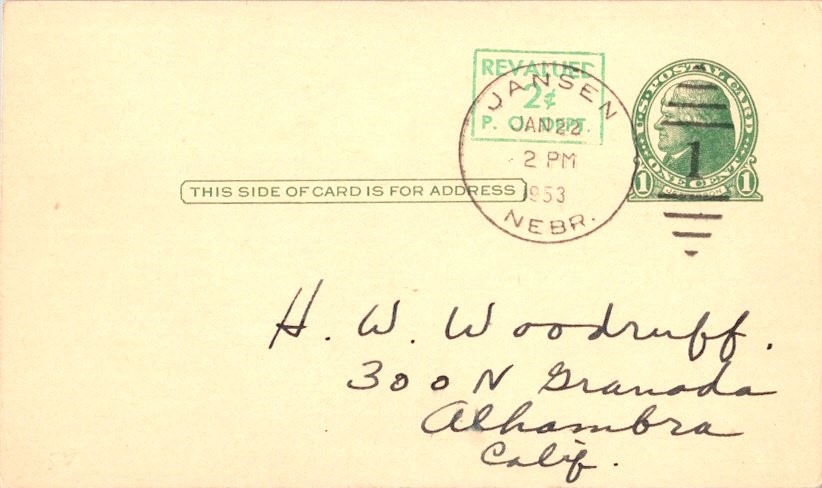 REVALUED
2¢
P. O. DEPT.
JANSEN
JAN 22
2 PM
1953
NEBR.
U.S. POSTAL CARD
1
1 ONE CENT 1
JEFFERSON
THIS SIDE OF CARD IS FOR ADDRESS
H. W. Woodruff.
300 N Granada
Alhambra
Calif.